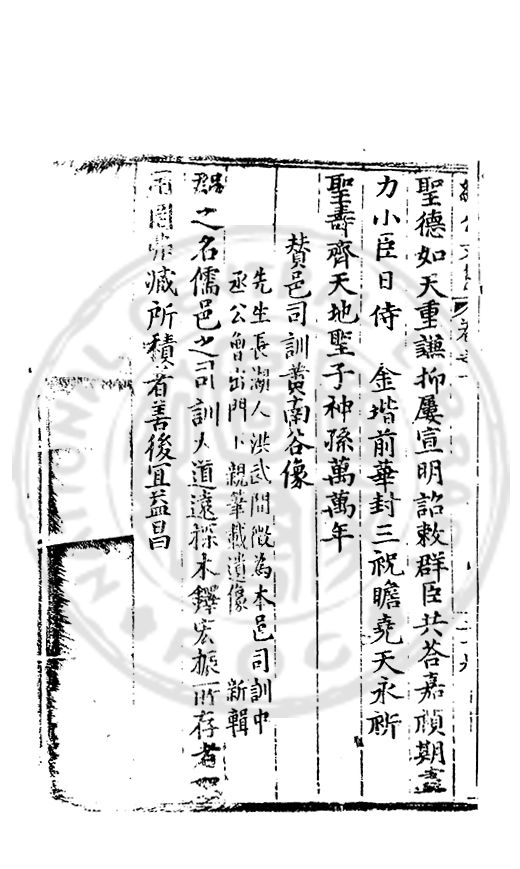 聖德如天重謙抑屢宣明詔敕群臣共荅嘉禎期盡
力小臣日侍　金堦前華封三祝瞻堯天永祈
聖壽齊天地聖子神孫萬萬年
贊邑司訓黃南谷像
先生長湖人洪武間徵為本邑司訓中
丞公曾出門下親筆載遺像　新輯
之名儒邑之司訓人道遠禄木鐸宏振所存者
所積者善後宜益昌